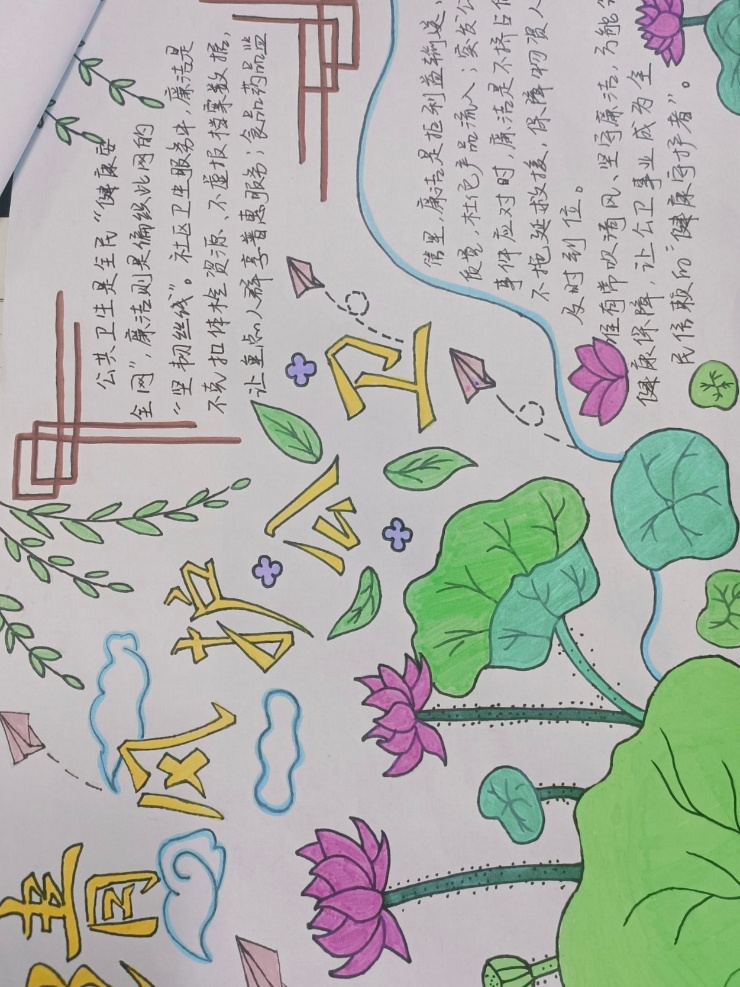 清风护公卫
公共卫生是全民“健康安
全网”，廉洁则是编织此网的
“坚韧丝线”。社区卫生服务中，廉洁是
不克扣体检资源、不虚报档案数据，
让重点人群享普惠服务；食品药品监
管里，廉洁是拒利益输送，
产品流入；突发公
事件应对时，廉洁是不挤占
不拖延救援，保障物资人
及时到位。
唯有常吹清风、坚守廉洁，方能
健康保障，让公卫事业成为全
民信赖的“健康守护者”。